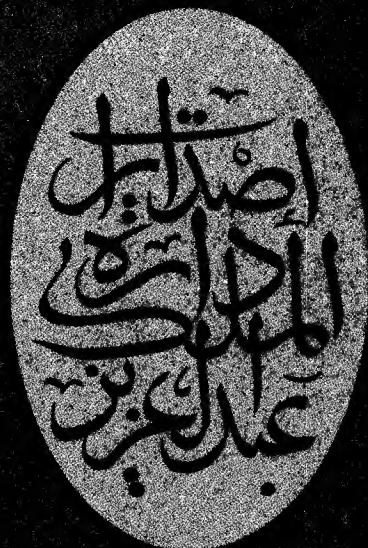 إصدارات
دارة الملك
عبد العزيز